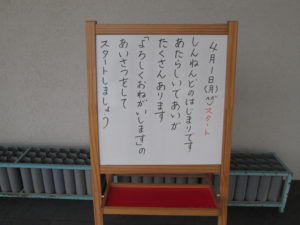 4月1日(月) スタート
しんねんどのはじまりです
あたらしいであいが
たくさんあります
「よろしくおねがいします」の
あいさつをして
スタートしましょう